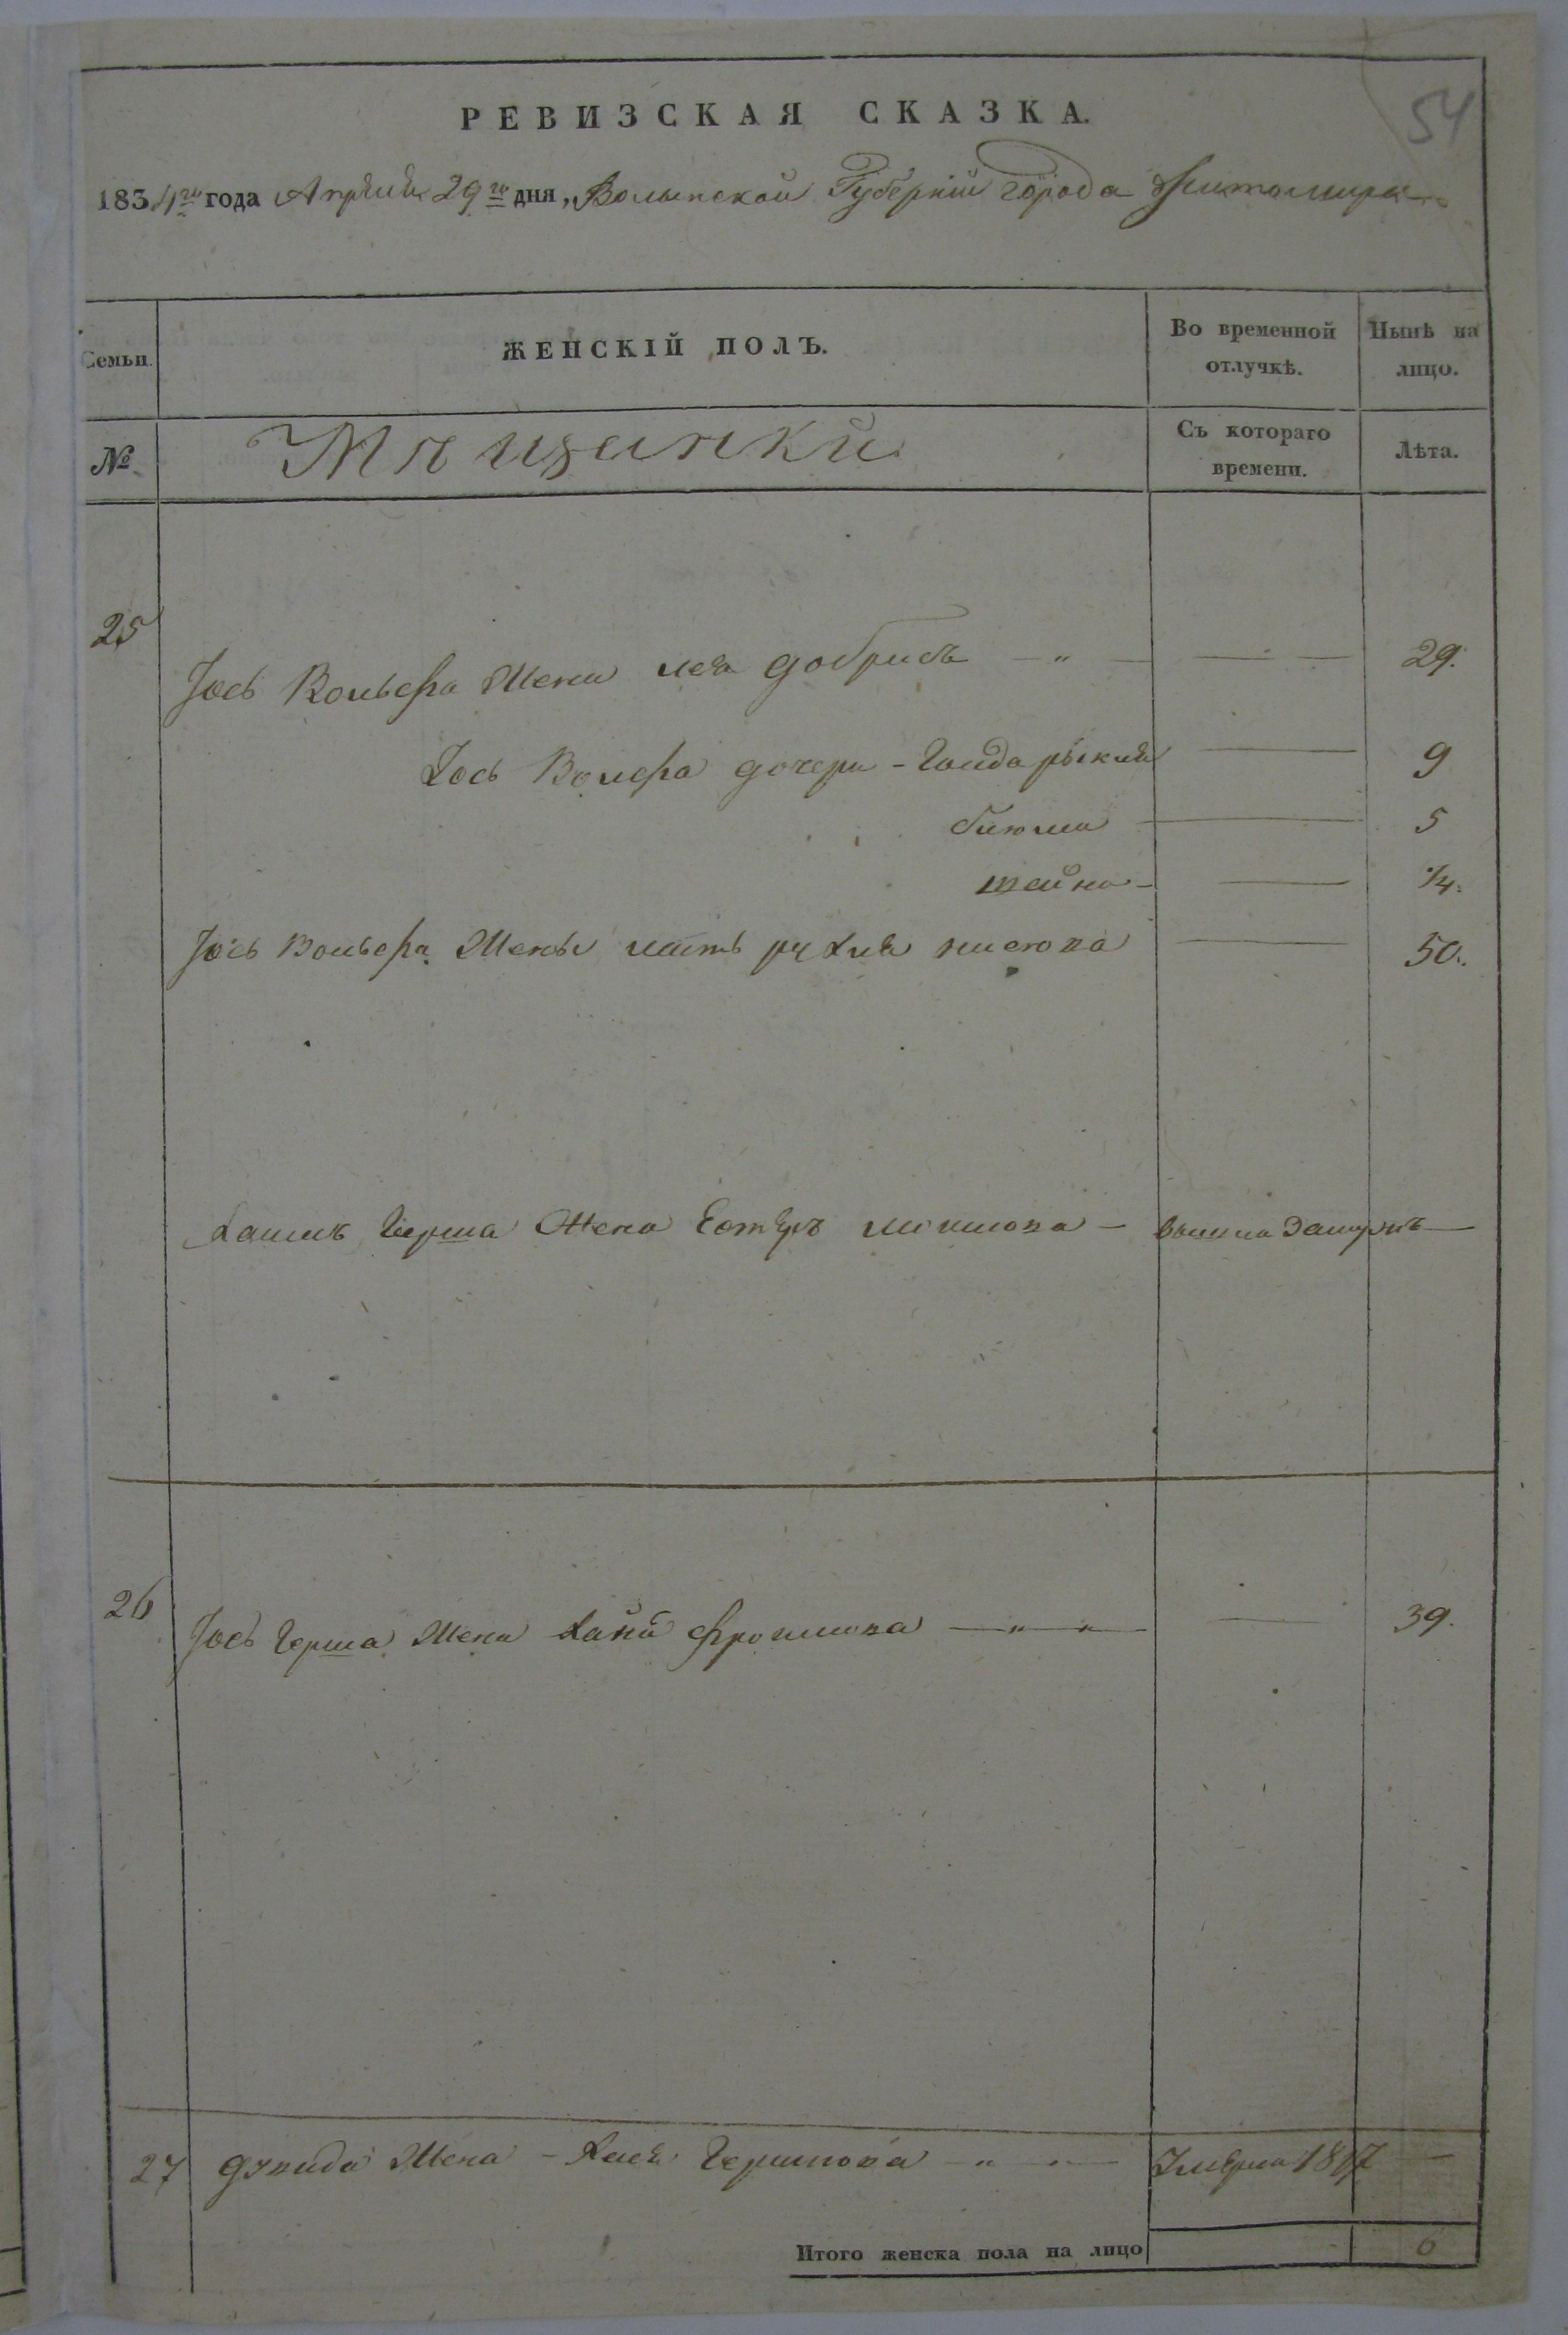 54
РЕВИЗСКАЯ СКАЗКА.
1834го года Апреля 29го дня, Волынской Губерніи города Житомира
Семьи.
ЖЕНСКІЙ ПОЛЪ.
Во временной отлучкѣ.
Нынѣ на лицо.
№
Мѣщанки
Съ котораго времени.
Лѣта.
25
Іось Вольфа Жена лея — " — — 29.
Іось Волфа дочери - — 9
блюма — 5
шейна — — 1/4.
Іось Вольфа Жены мать — 50.
Герша Жена Естеръ — вышла замужъ —
26 Іось Герша Жена хана — " — " — — 39.
27 Жена - хая Гершкова — " — " — Умерла 18 7 —
Итого женска пола на лицо 6